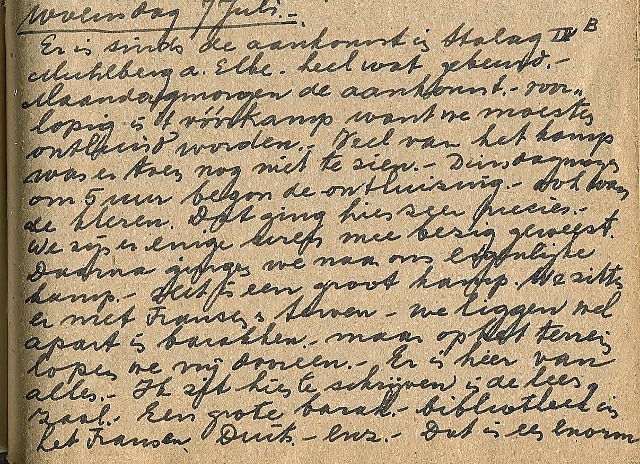 Woensdag 7 Juli.-
Er is sinds de aankomst in Stalag IV B
Muhlberg a. Elbe. heel wat gebeurd.-
Maandagmorgen de aankomst.- voor-
lopig in 't vóórkamp want we moesten
ontluisd worden.- Veel van het kamp
was er toen nog niet te zien.- Dinsdagmorgen
om 5 uur begon de ontluizing.- ook van
de kleren. Dat ging hier zeer precies.-
We zijn er enige uren mee bezig geweest.
Daarna gingen we naar ons eigenlijke
kamp.- Dit is een groot kamp. We zitten
er met Fransen, Serven - we liggen wel
apart in barakken.- maar op het terrein
lopen we vrij dooreen.- Er is hier van
alles.- Ik zit hier te schrijven in de lees
zaal.- Een grote barak.- bibliotheek in
het Frans en Duits.- enz.- Dat is een enorm